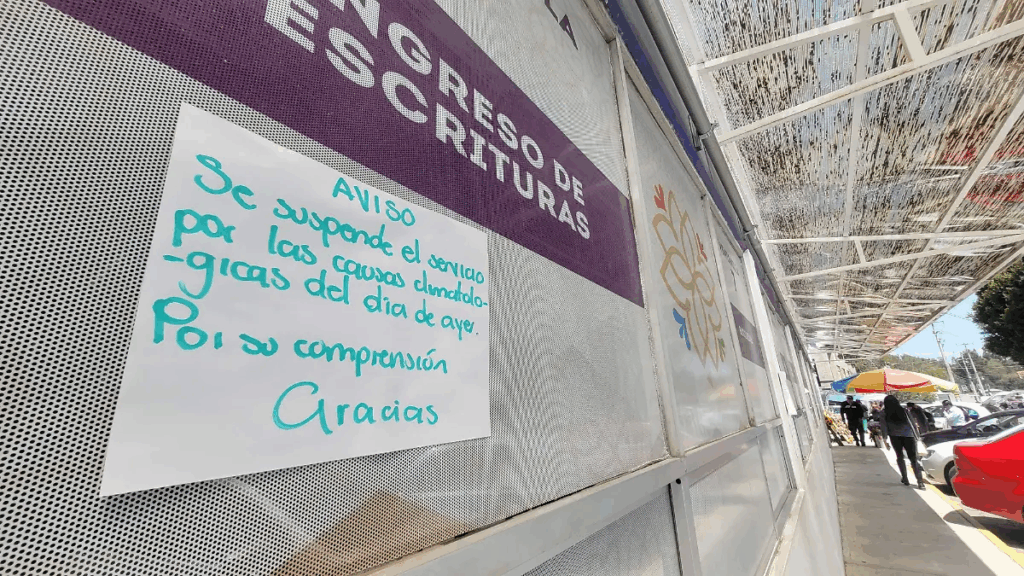 LA
INGRESO DE
ESCRITURAS
AVISO
Se suspende el servicio
por las causas climatolo-
-gicas del día de ayer.
Por su comprensión
Gracias